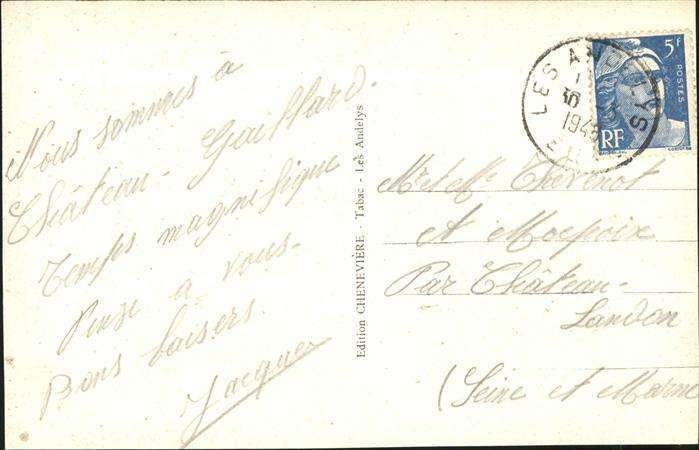 Nous sommes à
Château-Gaillard.
Temps magnifique
Pense à vous-
Bons baisers.
Jacques
Edition CHENEVIÈRE - Tabac - Les Andelys
LES ANDELYS
30
EURE
5F
POSTES
RF
Mr et Me Thevenot
A Maepoix
Par Château-
Landon
(Seine et Marne